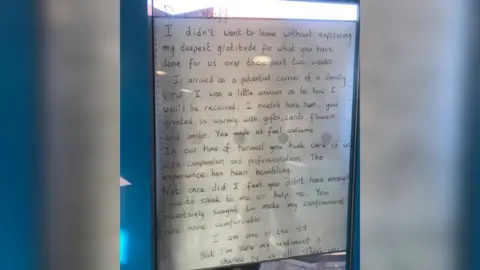 I didn't want to leave without expressing
my deepest gratitude for what you have
done for us over these past two weeks
I arrived as a potential carrier of a deadly
virus. I was a little anxious as to how I
would be received. I needn't have been, you
greeted us warmly with gifts, cards, flowers
and smiles. You made us feel welcome
In our time of turmoil you took care of us
with compassion and professionalism. The
experience has been humbling.
Not once did I feel you didn't have enough
time to speak to me or help me. You
proactively sought to make my confinement
more comfortable.
I am one of the
But I'm sure my sentiment is
shared by us all. Thank you